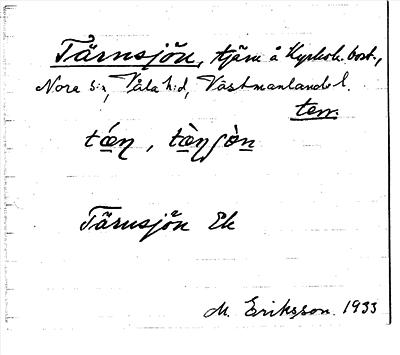 Tärnsjön, tjärn å Kyrkob. bost.,
Nora s:n, Våla h:d, Västmanlands l.
terr.
tǽn, tæ̀nʃòn
Tärnsjön Ek
M. Eriksson. 1933